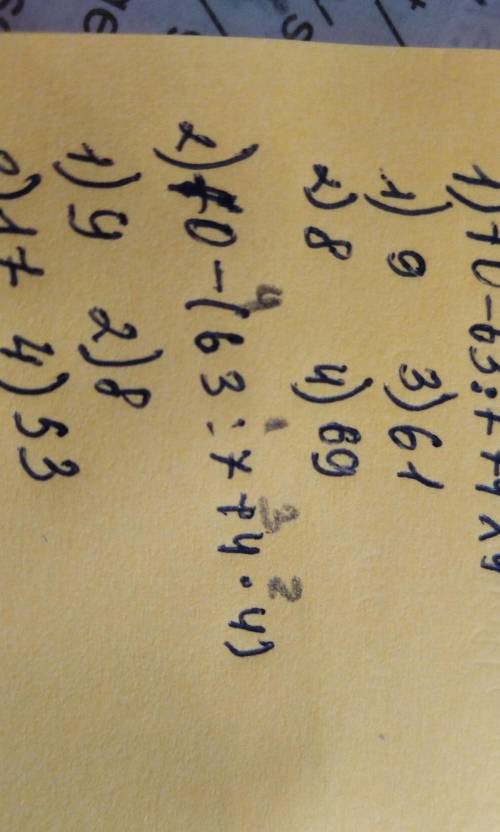 1) 70-63:7+4×4
1) 9 3) 61
2) 8 4) 69
4 1 3 2
2) 70-(63:7+4·4)
1) 9 2) 8
17 4) 53